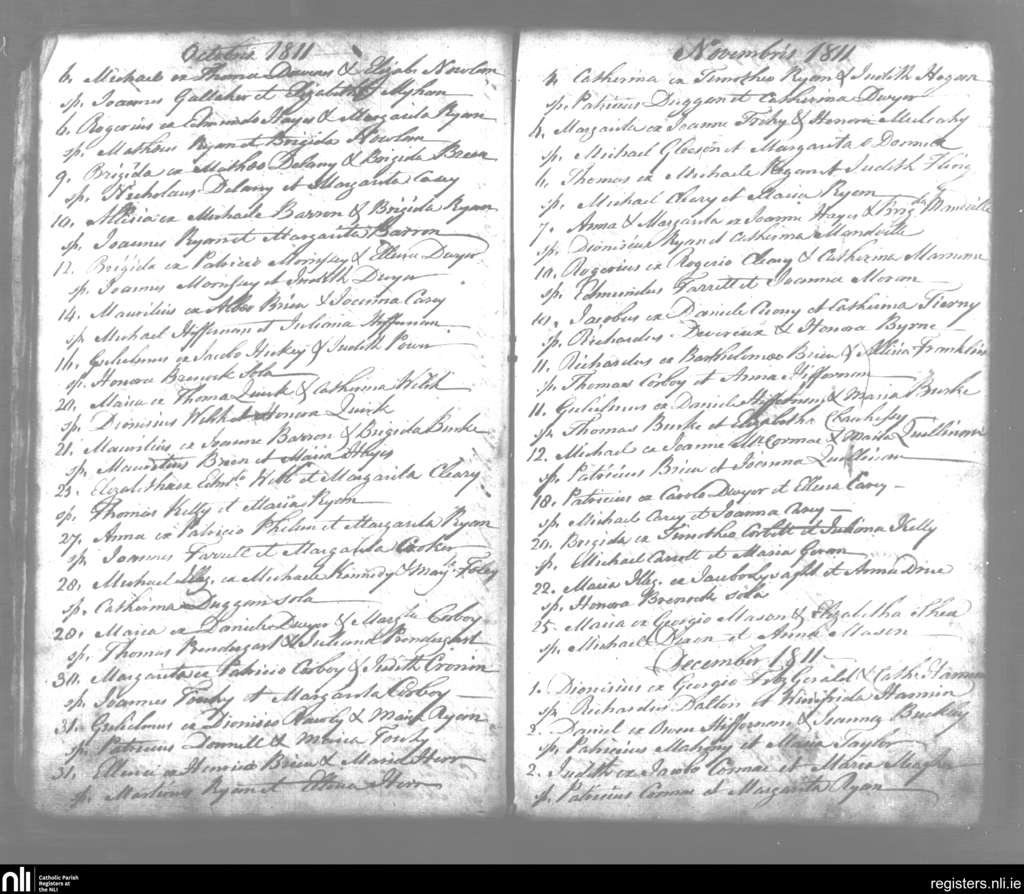 Octobris 1811
6. Michael ex Thoma Downs & Elizab. Nowlan
sp. Joannes Gallaher et Elizabeth
6. Rogerius ex Edmundo Hayes & Margarita Ryan
sp. Matheus Ryan et Brigida Nowlan
9. Brigida ex Matheo Delany & Brigida Breen
sp. Nicholaus Delany et Margarita Casey
10. Allisia ex Michaele Barron & Brigida Ryan
sp. Joannes Ryan et Margarita Barron
12. Brigida ex Patricio Morrissy & Ellena Dwyer
sp. Joannes Morrissy et Judith Dwyer
14. Mauritius ex Brien & Joanna Carey
sp. Michael Heffernan et Juliana Heffernan
16. Gulielmus ex Jacobo Hickey & Judith Power
sp. Honora Brenock Sola
20. Maria ex Thoma Quirk & Catherina Welsh
sp. Dionisius Welsh et Honora Quirk
21. Mauritius ex Joanne Barron & Brigida Burke
sp. Mauritius Brien et Maria Hayes
23. Elizabetha ex Edmdo. Webb et Margarita Cleary
sp. Thomas Kelly et Maria Ryan
27. Anna ex Patricio Phelan et Margarita Ryan
sp. Joannes Farrell et Margarita Crooker
28. Michael Illeg. ex Michaele Kennedy & Mary Foley
sp. Catherina Duggan sola
20. Maria ex Daniele Dwyer & Margta. Corboy
sp. Thomas Prendergast & Juliana Prendergast
30. Margarita ex Patricio Corboy & Judith Cronin
sp. Joannes Touhy et Margarita Corboy
31. Gulielmus ex Dionisio Hawly & Maria Ryan
sp. Patricius Donnell & Maria Touhy
31. Ellena ex Henrico Brien & Maria Herr
sp. Martinus Ryan et Ellena Herr
Novembris 1811
4. Catherina ex Timotheo Ryan & Judith Hogan
sp. Patricius Duggan et Catherina Dwyer
4. Margarita ex Joanne Fohy & Honora Mulcahy
sp. Michael Gleeson et Margarita Donnell
4. Thomas ex Michaele Regan et Judith Fling
sp. Michael Cleary et Maria Ryan
7. Anna & Margarita ex Joanne Hayes & Brigda. Mandeville
sp. Dionisius Ryan et Catherina Mandeville
10. Rogerius ex Rogerio Cleary & Catherina Marnane
sp. Edmundus Farrell et Joanna Moran
10. Jacobus ex Daniele Creony et Catherina Tierny
sp. Richardus Devereux & Honora Byrne
11. Richardus ex Bartholomeo Brien & Allisia Franklin
sp. Thomas Corboy et Anna Heffernan
11. Gulielmus ex Daniele Heffernan & Maria Burke
sp. Thomas Burke et Elizabetha
12. Michael ex Joanne McCormac & Maria Quillinan
sp. Patricius Brien et Joanna Quillinan
18. Patricius ex Carolo Dwyer et Ellena Carey
sp. Michael Carey et Joanna Carey
20. Brigida ex Timotheo Corbett et Juliana Kelly
sp. Michael Carroll et Maria Guran
22. Maria Illeg. ex Jacobo Lysaght et Anna Dine
sp. Honora Brenock sola
25. Maria ex Georgio Mason & Elizabetha Shea
sp. Michael Dixon et Anna Mason
December 1811
1. Dionisius ex Georgio FitzGerald & Cath. Hannin
sp. Richardus Dalton et Winifrida Hannin
2. Daniel ex Owen Heffernan & Joanna Buckley
sp. Patricius Mahony et Maria Taylor
2. Judith ex Jacobo Cormac et Maria Meagher
sp. Patricius Cormac et Margarita Ryan
nli
Catholic Parish
Registers at
the NLI
registers.nli.ie